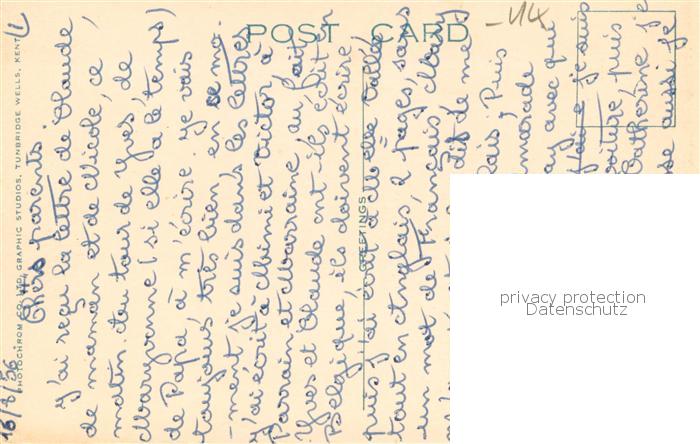 POST CARD
-44
PHOTOCHROM CO. LTD. GRAPHIC STUDIOS, TUNBRIDGE WELLS, KENT
GREETINGS
16/8/56
Chers parents
J'ai reçu la lettre de Claude,
de maman et de Nicole, ce
matin. Au tour de Yves, de
Maryvonne (si elle a le temps)
de Papa à m'écrire. Je vais
toujours très bien, en ce mo-
-ment je suis dans les lettres
j'ai écrit à Mimi et Victor, à
Parrain et Marraine, au fait
Yves et Claude ont-ils écrit en
Belgique, ils doivent écrire
puis j'ai écrit à Melle
tout en Anglais, 2 pages, sans
un mot de Français, Mary
dit de me
lais. Puis
camarade
ay avec qui
j'aime je suis
voiture, puis
Catherine, je
se aussi je
privacy protection
Datenschutz